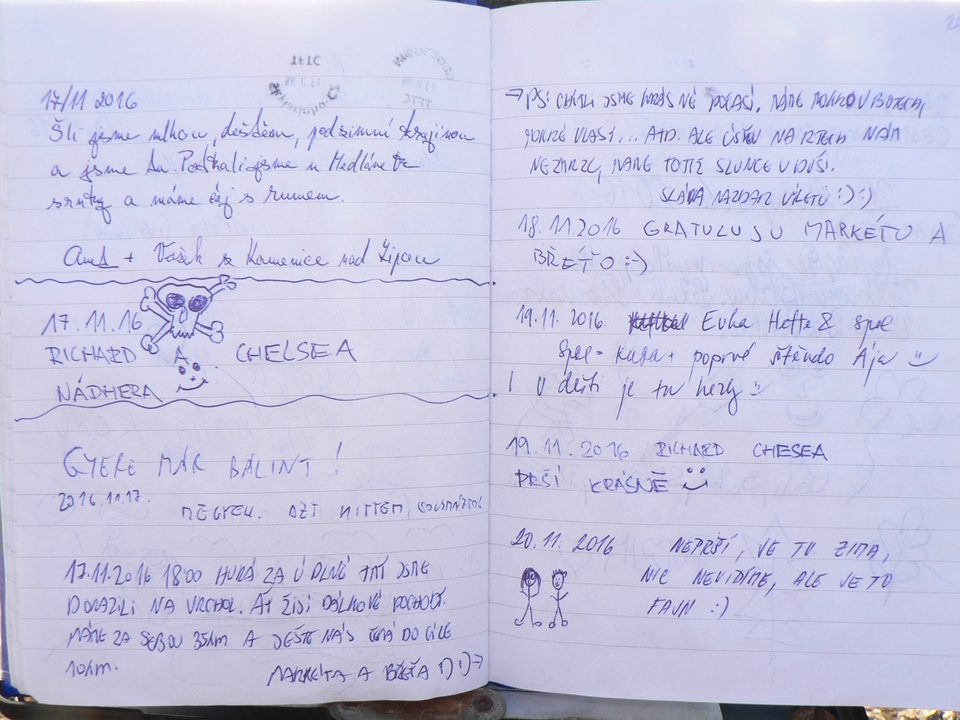 17/11 2016
Šli jsme mlhou, deštěm, podzimní krajinou
a jsme tu. Potkali jsme u Medláne
srnky a máme čaj s rumem.
+ Vašek z Kamenice nad Lipou
17.11.16
RICHARD A CHELSEA
NÁDHERA
GYERE MÁR BÁLINT!
2016.11.17.
MEGYEK. AZT HITTEM,
17.11.2016 18:00 HURÁ ZA ÚPLNÉ TMY JSME
DORAZILI NA VRCHOL. AŤ ŽIJÍ DÁLKOVÉ POCHODY.
MÁME ZA SEBOU 35km A JEŠTĚ NÁS ČEKÁ DO CÍLE
10km.
MARKÉTA A BŘÉŤA :) :) →
→ PS: CHTĚLI JSME KRÁSNÉ POČASÍ, MÁME MOKRO V BOTECH,
MOKRÉ VLASY... ATD. ALE ÚSMĚV NA RTECH NÁM
NEZMRZL, MÁME TOTIŽ SLUNCE V DUŠI.
SLÁVA NAZDAR VÝLETU :) :)
18.11.2016 GRATULUJU MARKÉTO A
BŘÉŤO :-)
19.11. 2016. Evka Hefte & spol
spol = Kuba + poprvé štěndo Ája
I v dešti je tu hezky
19.11.2016 RICHARD CHESEA
PRŠÍ KRÁSNĚ
20.11.2016 NEPRŠÍ, JE TU ZIMA,
NIC NEVIDÍME, ALE JE TO
FAJN :)